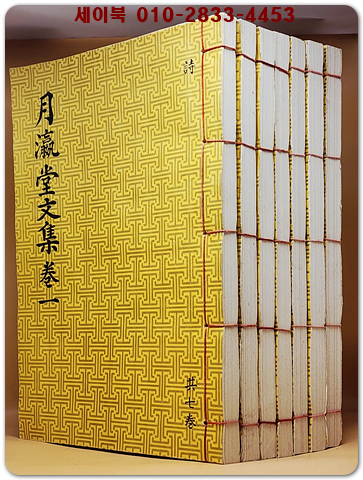 세이북 010-2833-4453
詩
月瀛堂文集卷一
共七卷